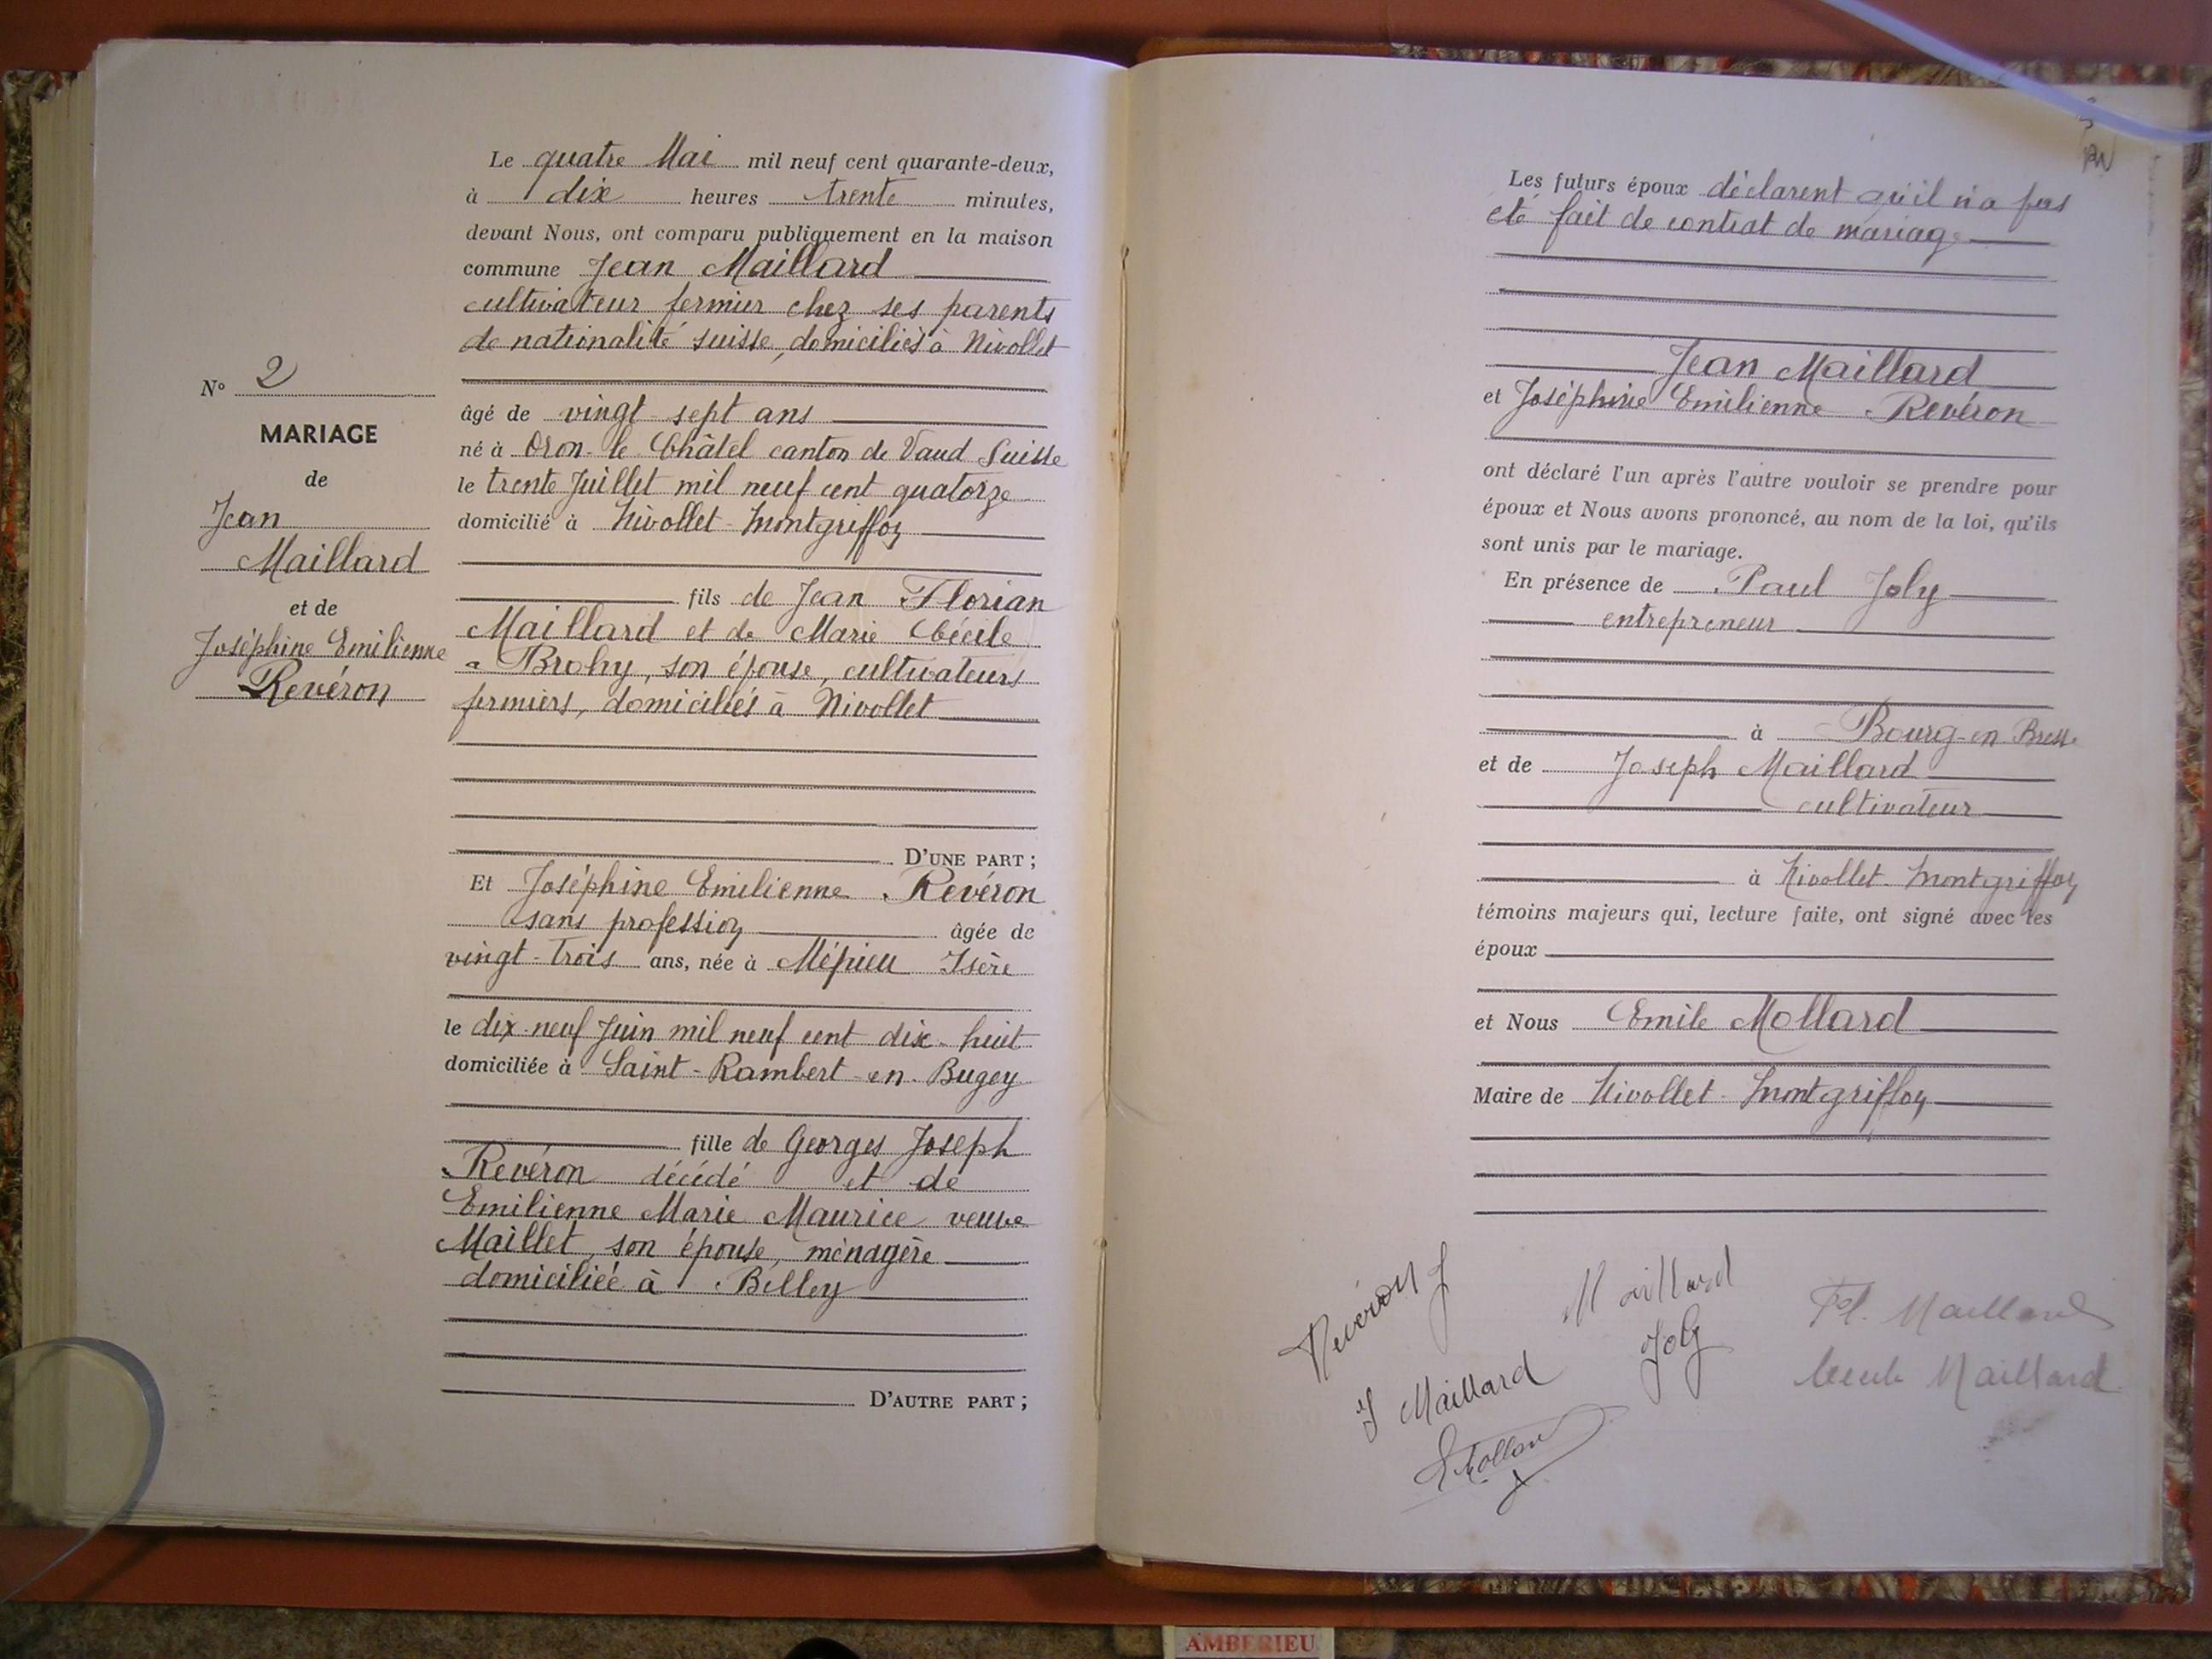 N° 2
MARIAGE
de
Jean
Maillard
et de
Joséphine Emilienne
Revéron
Le quatre Mai mil neuf cent quarante-deux,
à dix heures trente minutes,
devant Nous, ont comparu publiquement en la maison
commune Jean Maillard
cultivateur fermier chez ses parents
de nationalité suisse, domiciliés à Nivollet
âgé de vingt-sept ans
né à Oron-le Châtel canton de Vaud Suisse
le trente Juillet mil neuf cent quatorze
domicilié à Nivollet-Montgriffon
fils de Jean Florian
Maillard et de Marie Cécile
Brohy, son épouse, cultivateurs
fermiers, domiciliés à Nivollet
D'UNE PART ;
Et Joséphine Emilienne Revéron
sans profession âgée de
vingt-trois ans, née à Mépieu Isère
le dix-neuf Juin mil neuf cent dix-huit
domiciliée à Saint-Rambert-en-Bugey
fille de Georges Joseph
Revéron décédé et de
Emilienne Marie Maurice veuve
Maillet, son épouse, ménagère
domiciliée à Belley
D'AUTRE PART ;
Les futurs époux déclarent qu'il n'a pas
été fait de contrat de mariage
Jean Maillard
et Joséphine Emilienne Revéron
ont déclaré l'un après l'autre vouloir se prendre pour
époux et Nous avons prononcé, au nom de la loi, qu'ils
sont unis par le mariage.
En présence de Paul Joly
entrepreneur
à Bourg-en-Bresse
et de Joseph Maillard
cultivateur
à Nivollet-Montgriffon
témoins majeurs qui, lecture faite, ont signé avec les
époux
et Nous Emile Mollard
Maire de Nivollet-Montgriffon
Revéron J
Maillard
Fl. Maillard
J Maillard
Joly
Cécile Maillard
E Mollard
AMBERIEU